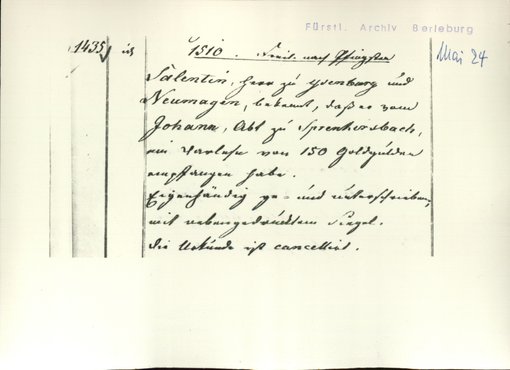 Fürstl. Archiv Berleburg
1435 1510. Freit. nach Pfingsten Mai 24
Salentin, Herr zu Ysenburg und
Neumagen, bekennt, daß er vom
Johann, Abt zu Sprenkirsbach,
ein Darlehn von 150 Goldgulden
empfangen habe.
Eigenhändig ge- und unterschrieben,
mit nebengedrücktem Siegel.
Die Urkunde ist cancellirt.